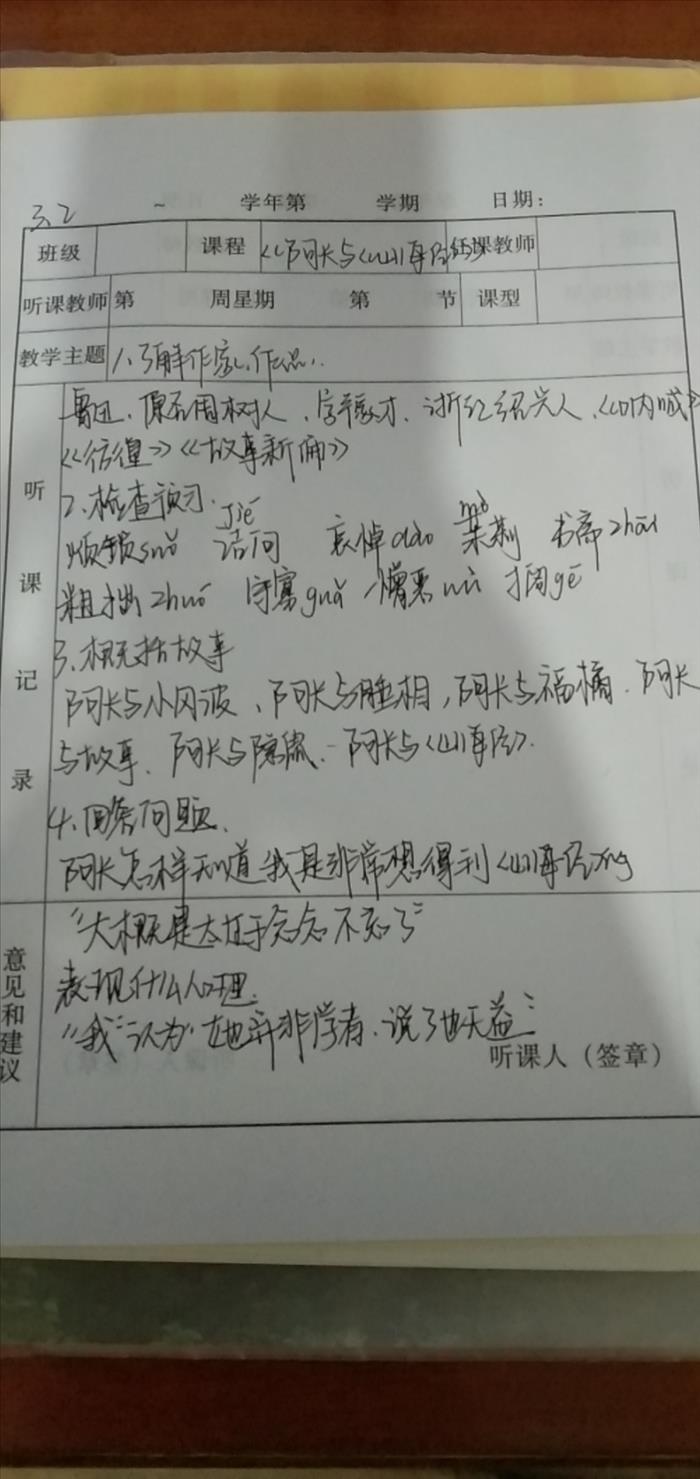 3.2 ~ 学年第 学期 日期：
班级 课程 《阿长与《山海经》》 任课教师
听课教师 第 周星期 第 节 课型
教学主题 1、了解作家、作品.
鲁迅、原名周树人、字豫才、浙江绍兴人、《呐喊》
《彷徨》《故事新编》
2、检查预习.
烦锁suǒ 诘问jié 哀悼dào 书斋zhāi
粗拙zhuō 守寡guǎ 憎恶wù 搁gē
3、概括故事
阿长与小风波、阿长与睡相，阿长与福橘、阿长
与故事、阿长与隐鼠、阿长与《山海经》.
4、回答问题、
阿长怎样知道我是非常想得到《山海经》的
"大概是太过于念念不忘了"
表现什么心理.
"我"认为"她并非学者、说了也无益"
听课记录
意见和建议
听课人（签章）